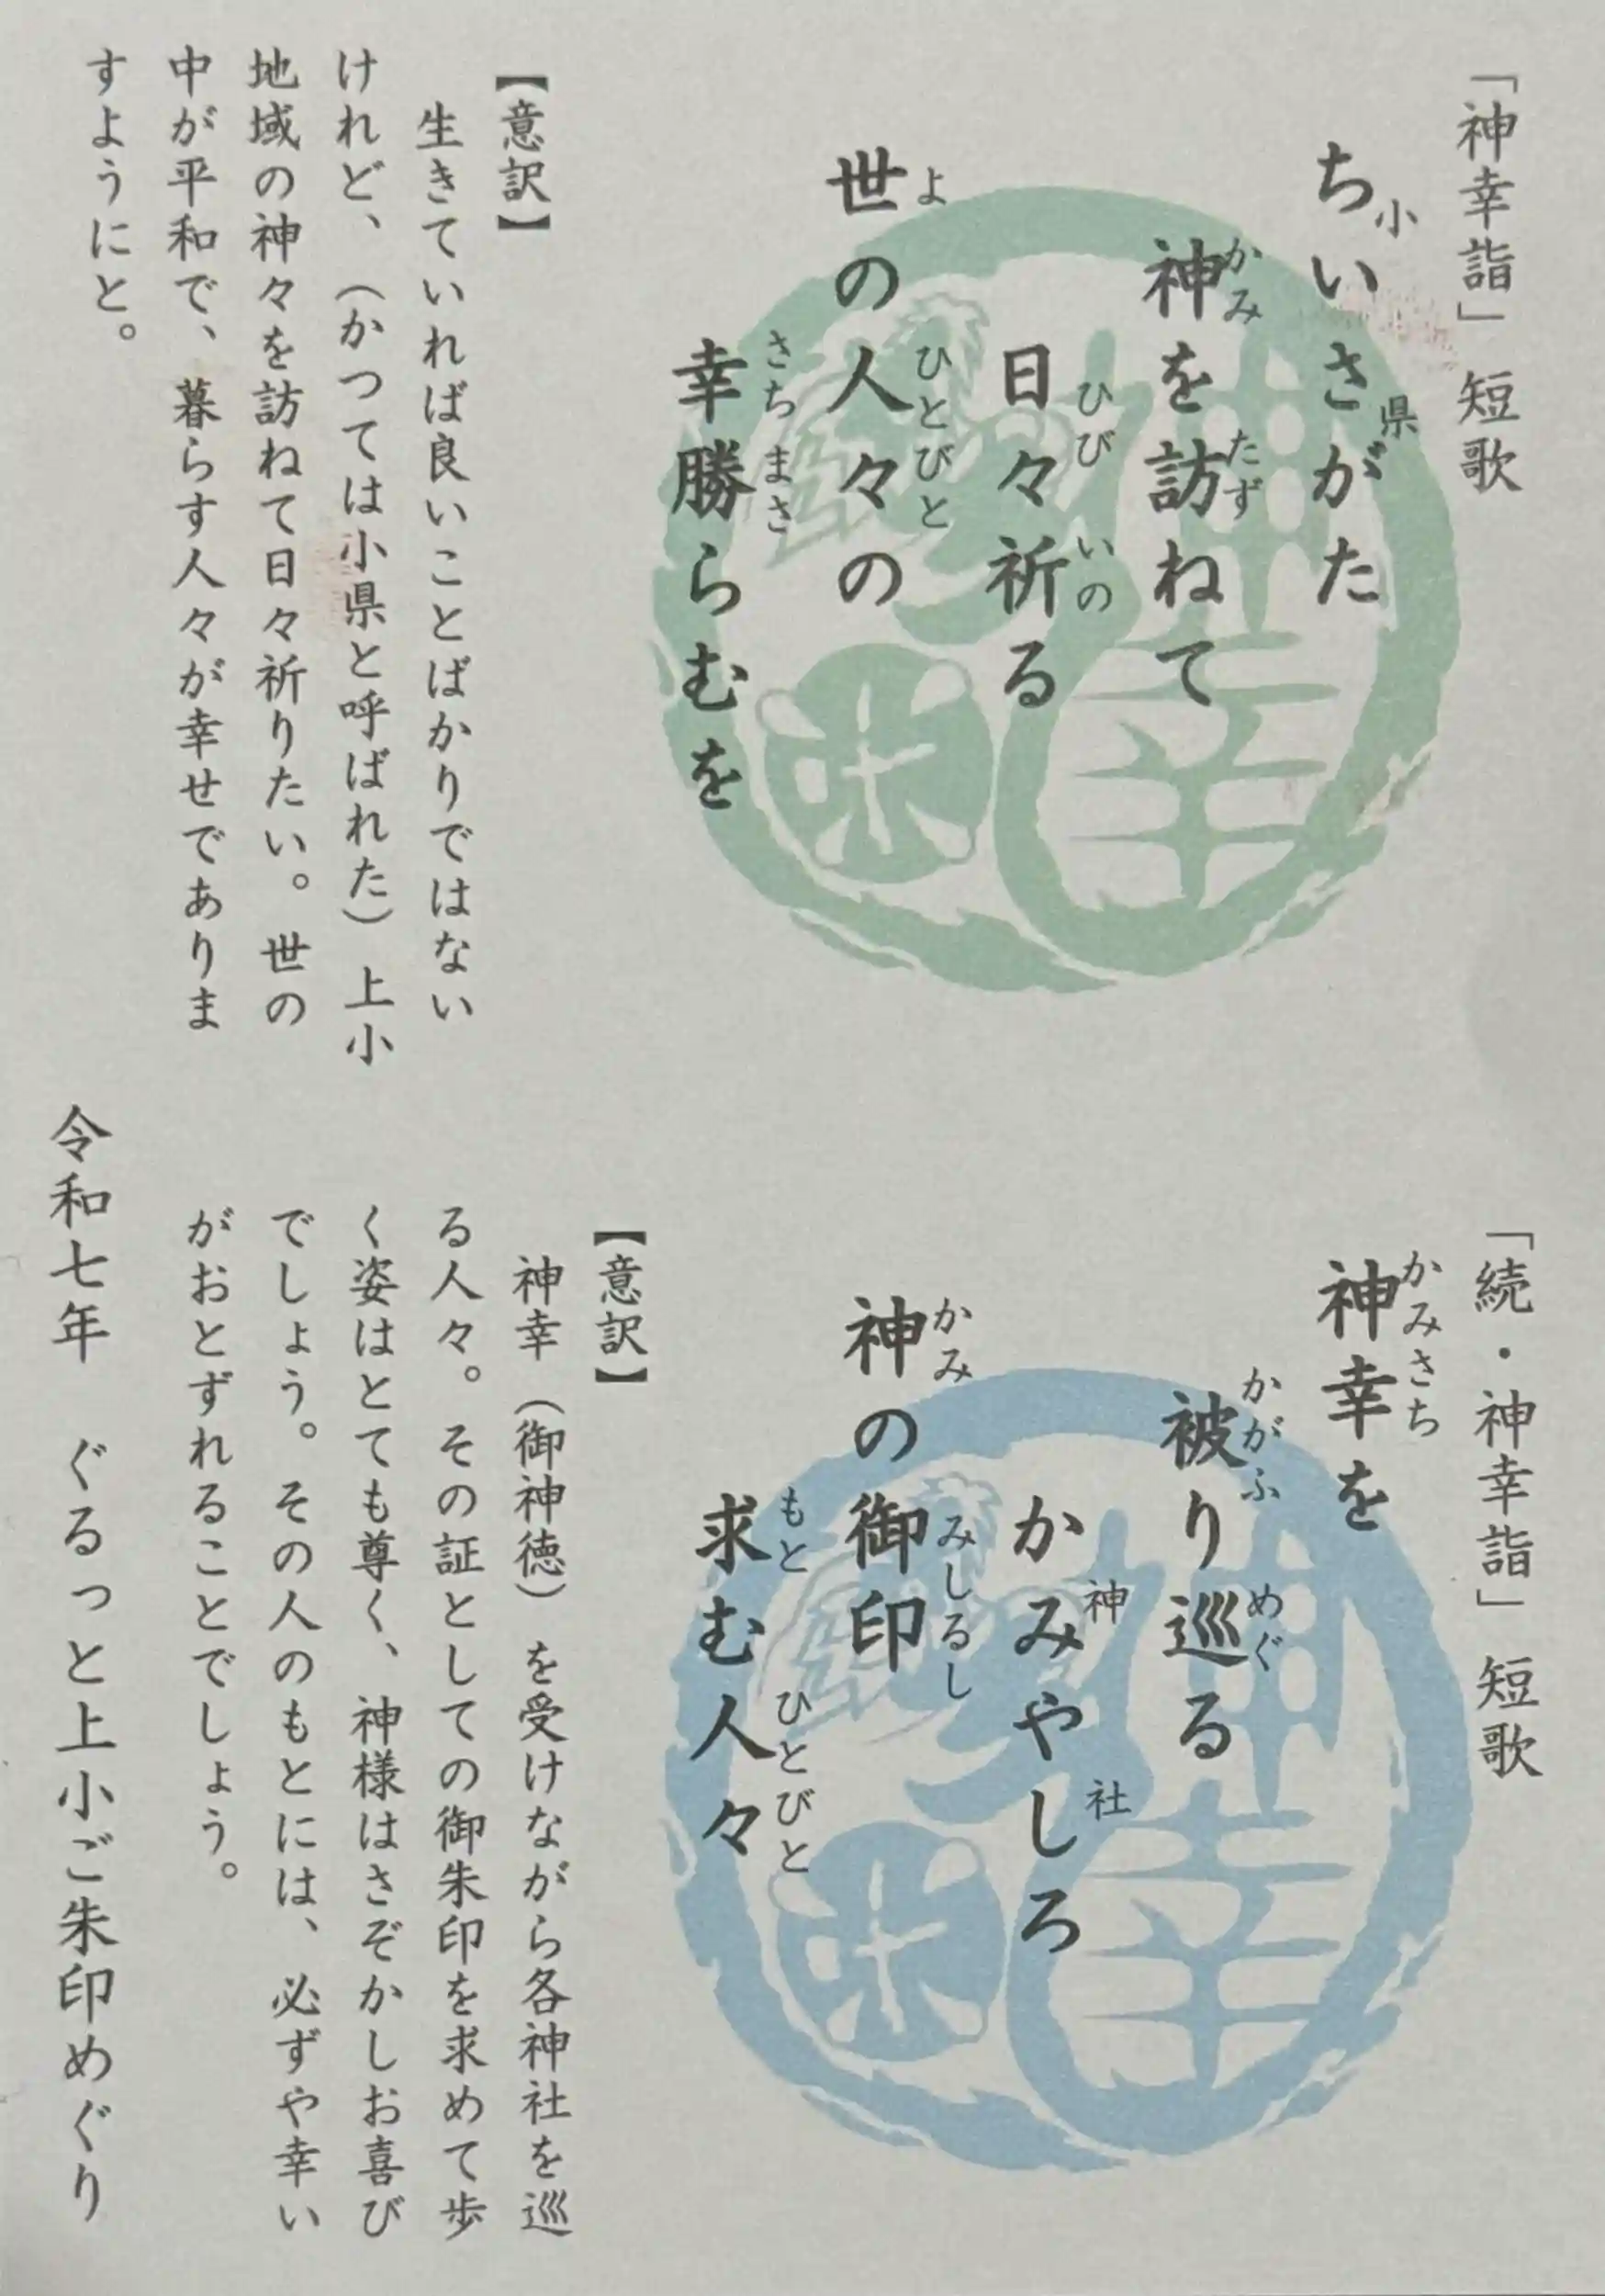 「神幸詣」短歌
ちいさがた
小県
神を訪ねて
かみ たず
日々祈る
ひび いの
世の人々の
よ ひとびと
幸勝らむを
さちまさ
【意訳】
生きていれば良いことばかりではない
けれど、（かつては小県と呼ばれた）上小
地域の神々を訪ねて日々祈りたい。世の
中が平和で、暮らす人々が幸せでありま
すようにと。
「続・神幸詣」短歌
神幸を
かみさち
被り巡る
かがふ めぐ
かみやしろ
神社
神の御印
かみ みしるし
求む人々
もと ひとびと
【意訳】
神幸（御神徳）を受けながら各神社を巡
る人々。その証としての御朱印を求めて歩
く姿はとても尊く、神様はさぞかしお喜び
でしょう。その人のもとには、必ずや幸い
がおとずれることでしょう。
令和七年 ぐるっと上小ご朱印めぐり
神幸
神幸